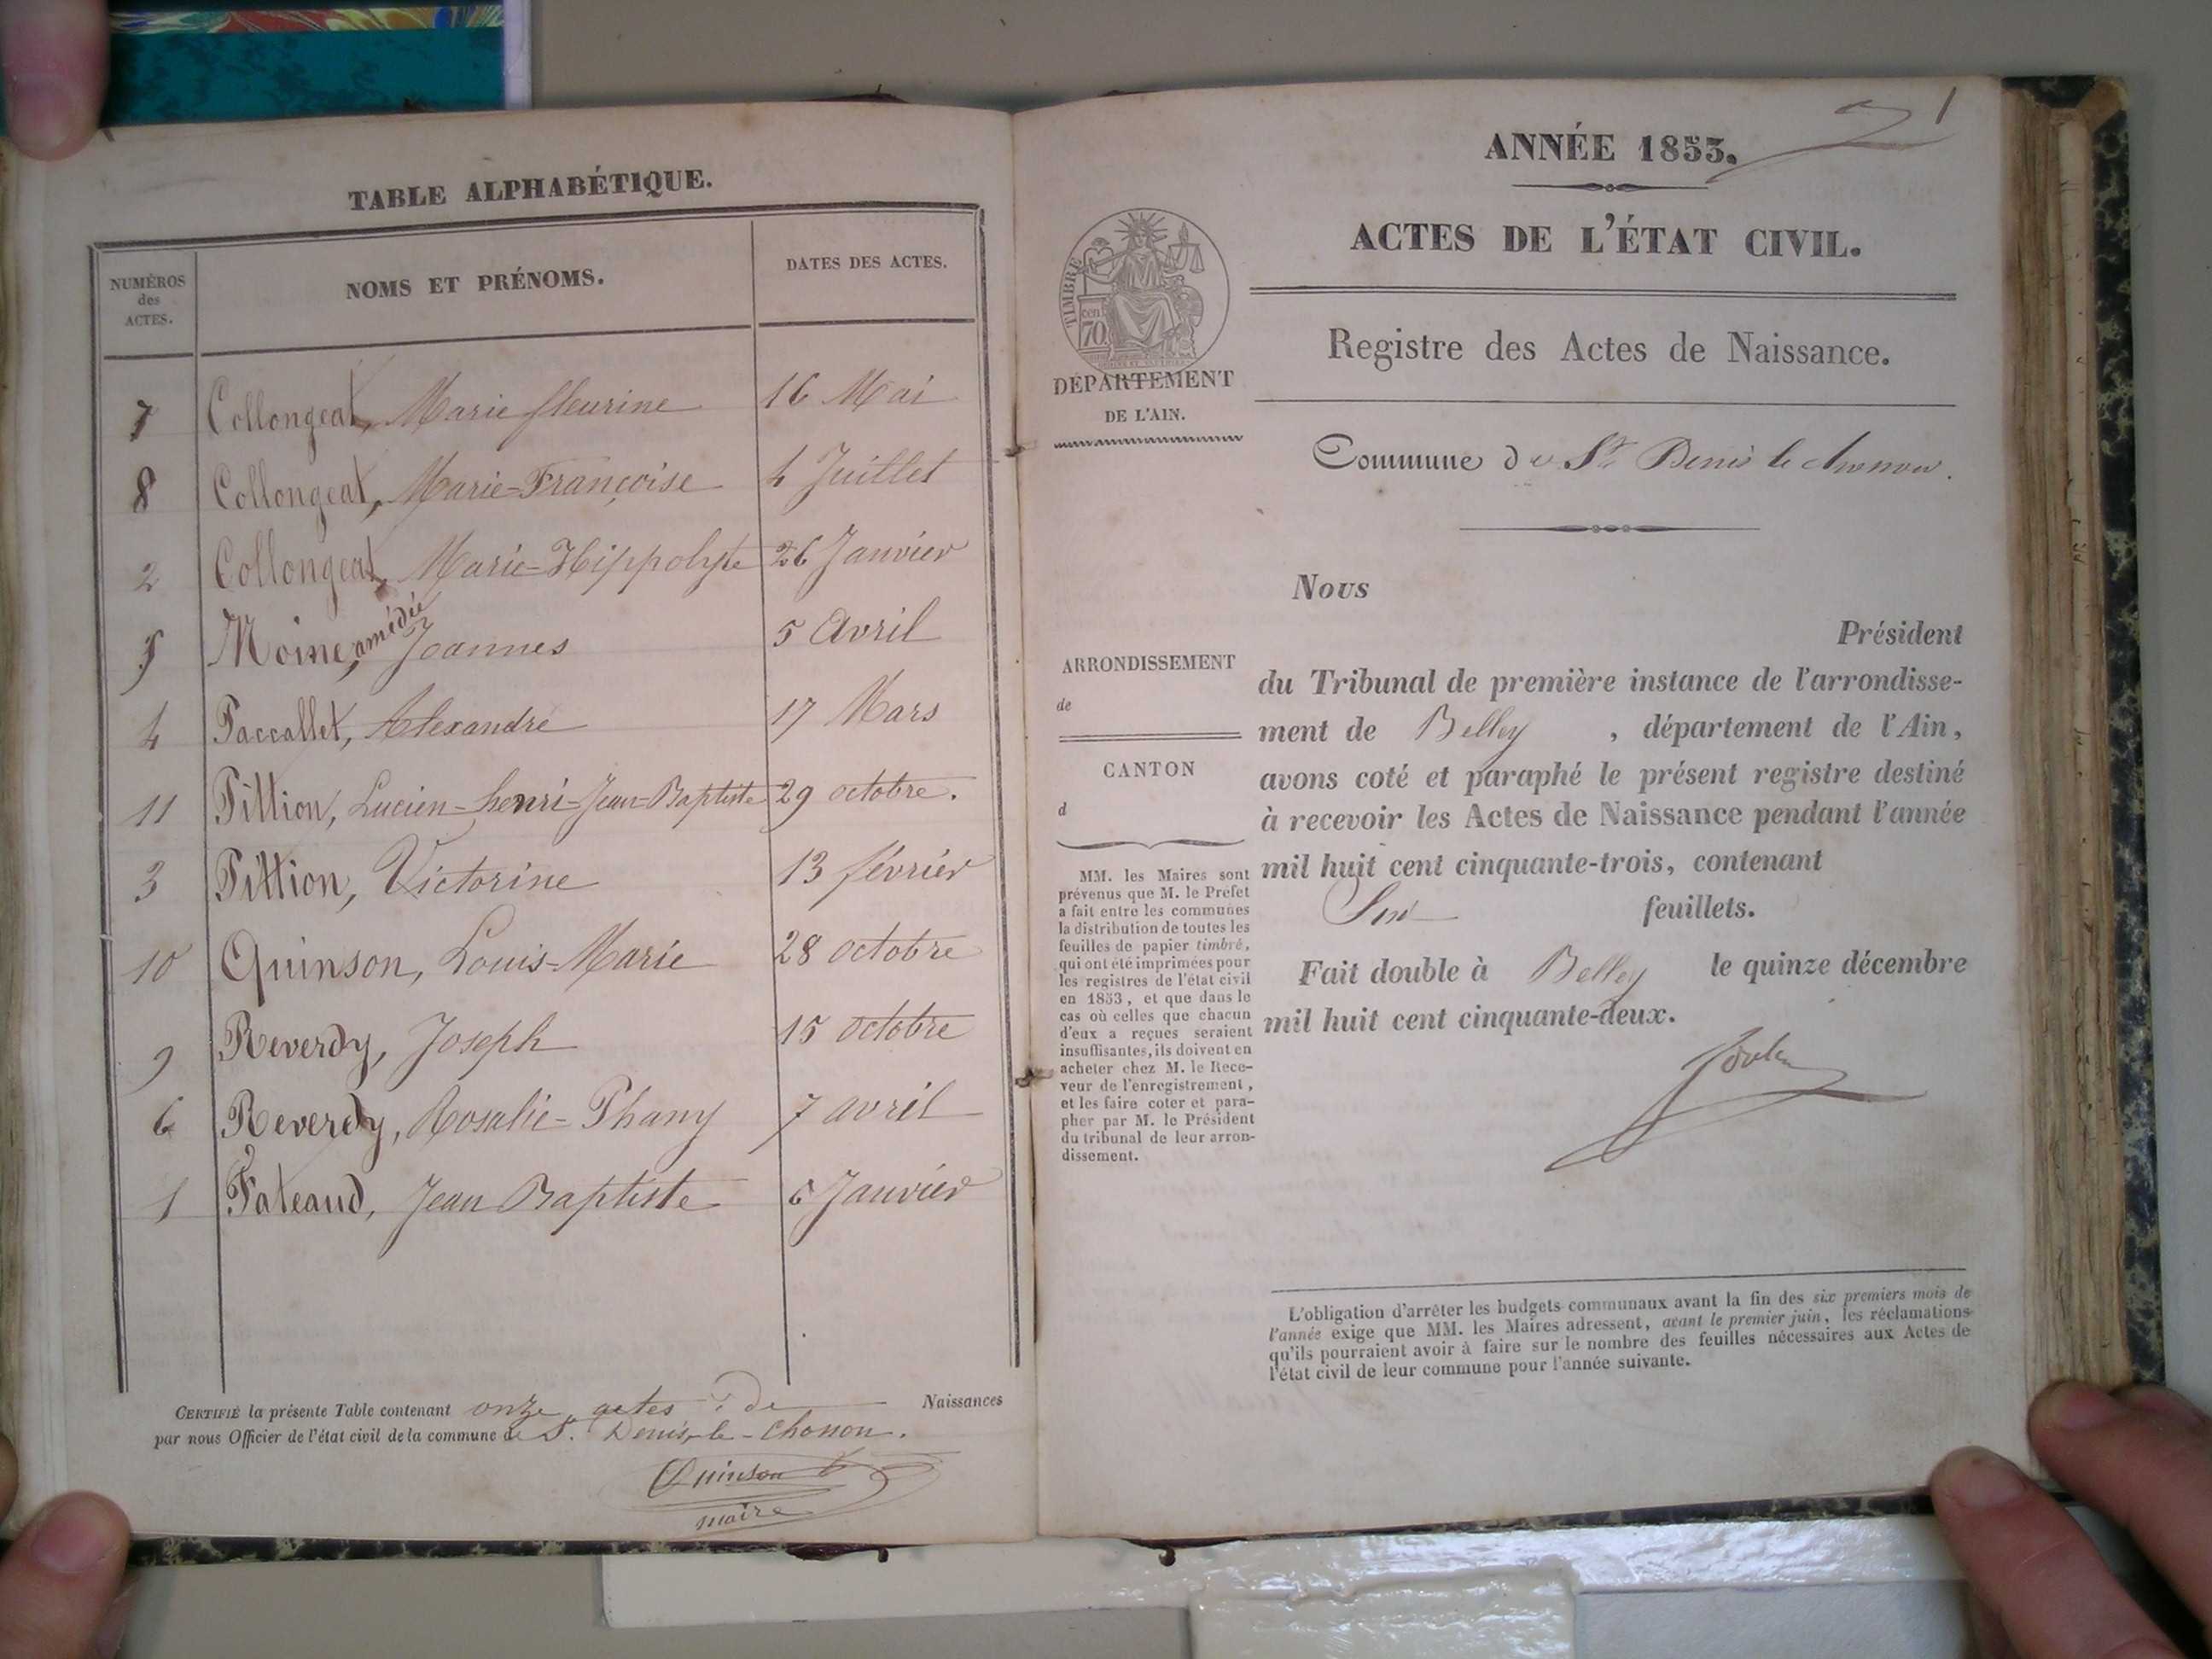 TABLE ALPHABÉTIQUE.
NUMÉROS
des
ACTES.
NOMS ET PRÉNOMS.
DATES DES ACTES.
7 Collongeat, Marie fleurine 16 Mai
8 Collongeat, Marie-Françoise 4 Juillet
2 Collongeat, Marie-Hippolyte 26 Janvier
amédée
5 Moine, Joannes 5 Avril
4 Paccallet, Alexandre 17 Mars
11 Pittion, Lucien-henri-Jean-Baptiste 29 octobre.
3 Pittion, Victorine 13 février
10 Quinson, Louis-Marie 28 octobre
9 Reverdy, Joseph 15 octobre
6 Reverdy, Rosalie-Phany 7 avril
1 Fateaud, Jean Baptiste 6 Janvier
CERTIFIÉ la présente Table contenant onze actes de Naissances
par nous Officier de l'état civil de la commune de St. Denis-le-Chosson.
Quinson
maire
1
ANNÉE 1853.
ACTES DE L'ÉTAT CIVIL.
TIMBRE
cen
70
DÉPARTEMENT
DE L'AIN.
Registre des Actes de Naissance.
Commune de St. Denis le
Nous
Président
du Tribunal de première instance de l'arrondisse-
ment de Belley, département de l'Ain,
avons coté et paraphé le présent registre destiné
à recevoir les Actes de Naissance pendant l'année
mil huit cent cinquante-trois, contenant
Six feuillets.
Fait double à Belley le quinze décembre
mil huit cent cinquante-deux.
ARRONDISSEMENT
de
CANTON
d
MM. les Maires sont
prévenus que M. le Préfet
a fait entre les communes
la distribution de toutes les
feuilles de papier timbré,
qui ont été imprimées pour
les registres de l'état civil
en 1853, et que dans le
cas où celles que chacun
d'eux a reçues seraient
insuffisantes, ils doivent en
acheter chez M. le Rece-
veur de l'enregistrement,
et les faire coter et para-
pher par M. le Président
du tribunal de leur arron-
dissement.
L'obligation d'arrêter les budgets communaux avant la fin des six premiers mois de
l'année exige que MM. les Maires adressent, avant le premier juin, les réclamations
qu'ils pourraient avoir à faire sur le nombre des feuilles nécessaires aux Actes de
l'état civil de leur commune pour l'année suivante.